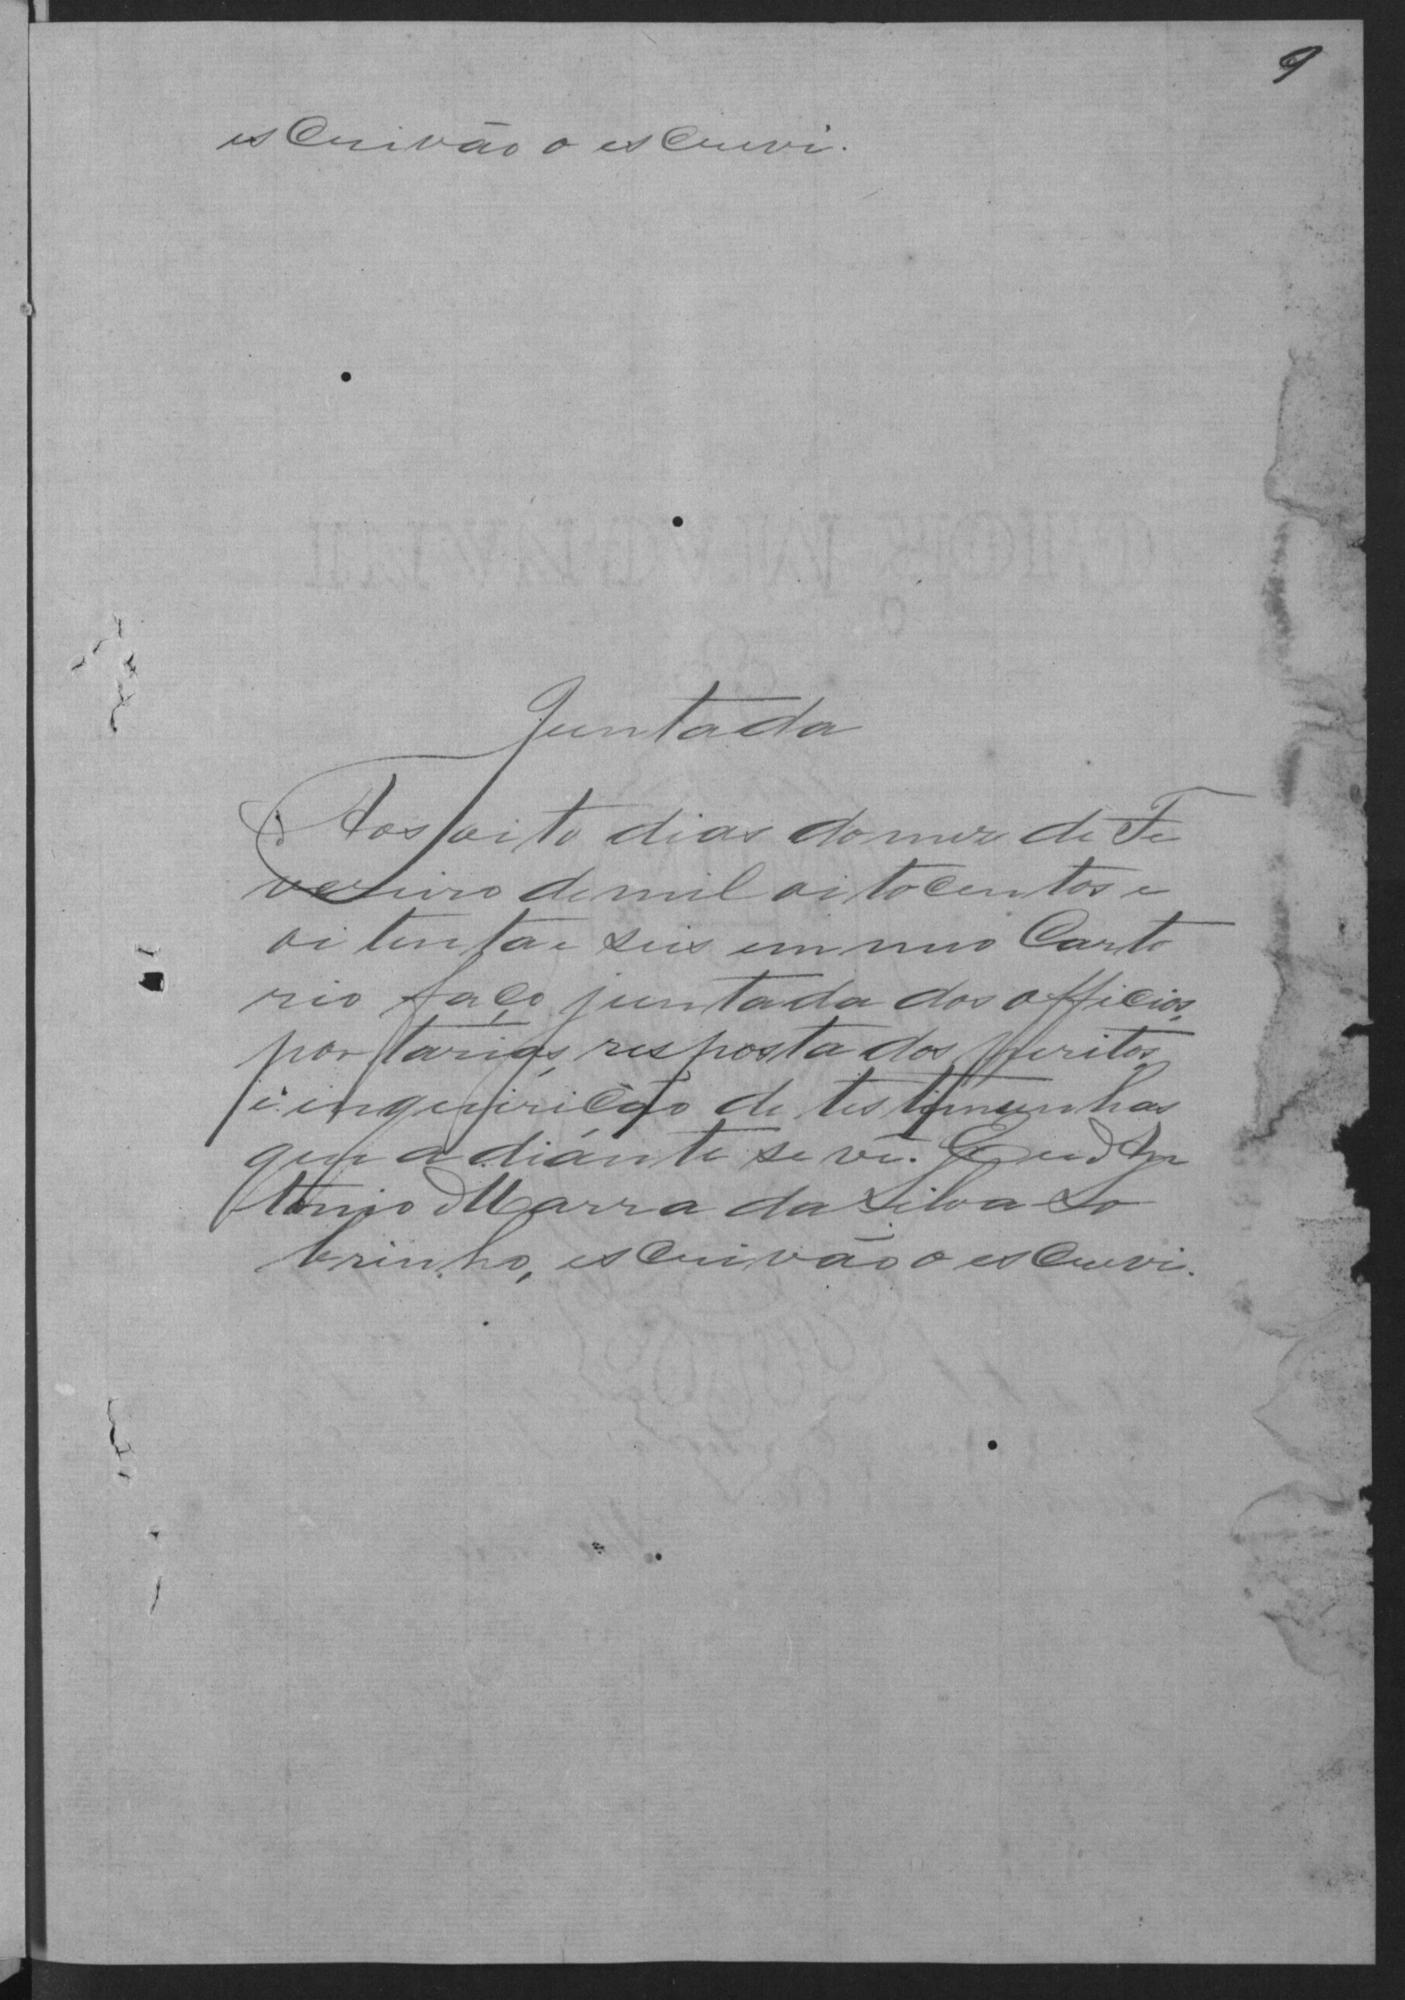 9
escrivão o escrevi.
Juntada
Aos oito dias do mez de Fe
vereiro de mil oitocentos e
oitenta e seis em meo Carto
rio faço juntada dos officios,
portarias, resposta dos peritos,
e inquirição de testimunhas
que adiánte se vê. Eu An
tonio Marra da Silva So
brinho, escrivão o escrevi.